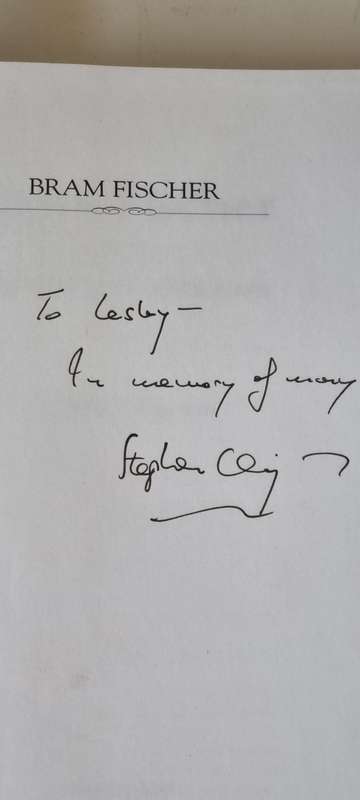 BRAM FISCHER
To Lesley—
In memory of many
Stephen